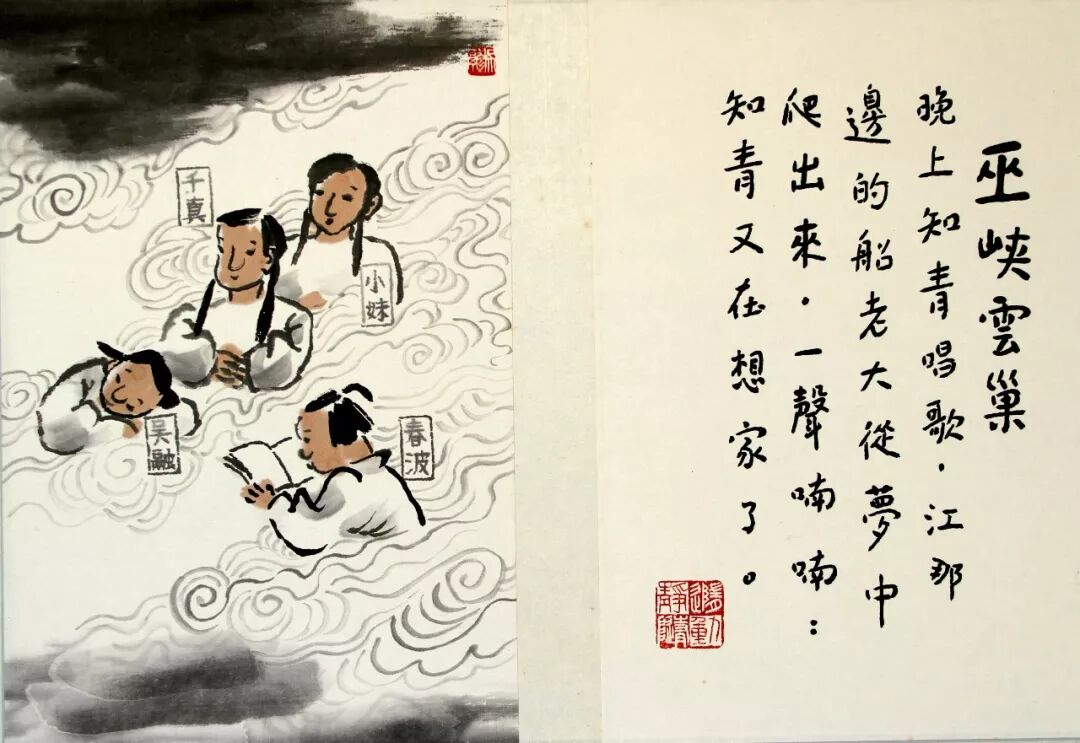 巫峽雲巢
晚上知青唱歌·江那
邊的船老大從夢中
爬出來·一聲喃喃：
知青又在想家了。
小妹
千真
吴融
春波